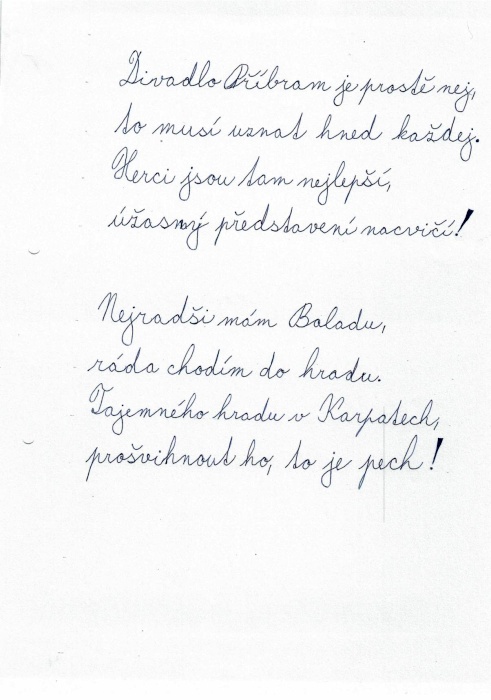 Divadlo Příbram je prostě nej,
to musí uznat hned každej.
Herci jsou tam nejlepší,
úžasný představení nacvičí!
Nejradši mám Baladu,
ráda chodím do hradu.
Tajemného hradu v Karpatech,
prošvihnout ho, to je pech!